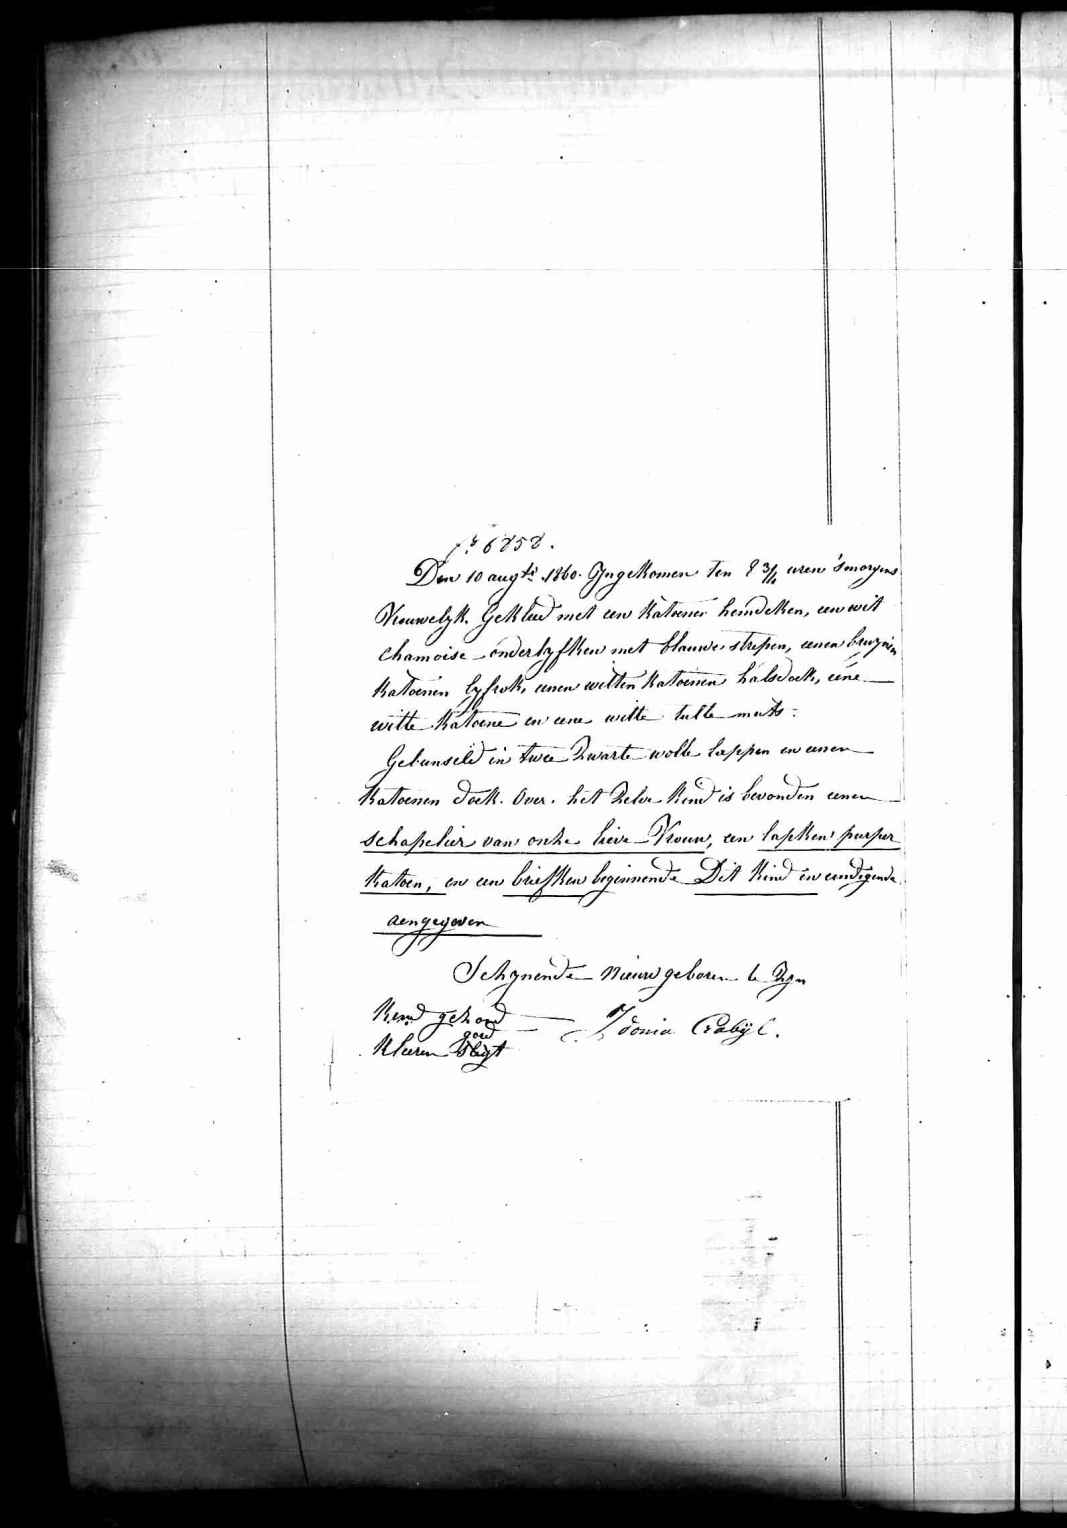 Nr 6858.
Den 10 augti 1860. Yngekomen ten 8 3/4 uren 'smorgens
Vrouwelyk. Gekleed met een katoenen hemdeken, een wit
chamoise onderlyfken met blauwe strepen, eenen bruynen
katoenen lyfrok, eenen witten katoenen halsdoek, eene
witte katoene en eene witte tulle muts:
Gebunseld in twee zwarte wolle lappen en eenen
katoenen doek. Over het zelve kind is bevonden eenen
schapelier van onze lieve Vrouw, een lapken purper
katoen, en een briefken beginnende Dit kind en eendigende
aengegeven
Schynende nieuw geboren te zyn
Kind gezond
goed
Kleeren slegt
Idonia Crabijl.